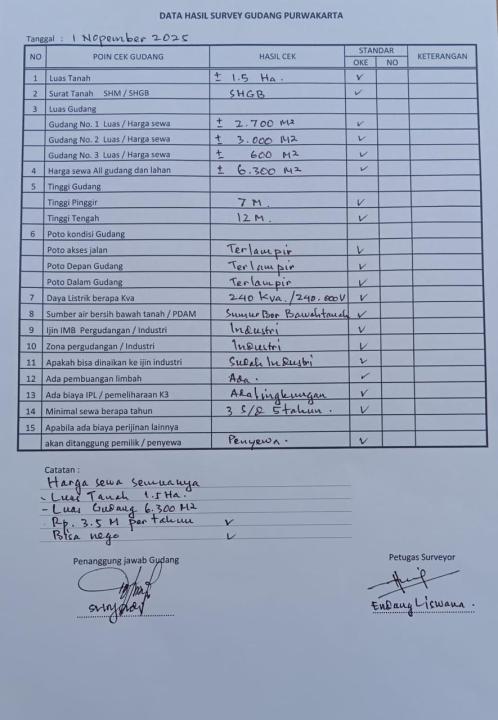 DATA HASIL SURVEY GUDANG PURWAKARTA
Tanggal : 1 Nopember 2025
NO POIN CEK GUDANG HASIL CEK STANDAR KETERANGAN
OKE NO
1 Luas Tanah ± 1.5 Ha. ✓
2 Surat Tanah SHM / SHGB SHGB ✓
3 Luas Gudang
Gudang No. 1 Luas / Harga sewa ± 2.700 M2 ✓
Gudang No. 2 Luas / Harga sewa ± 3.000 M2 ✓
Gudang No. 3 Luas / Harga sewa ± 600 M2 ✓
4 Harga sewa All gudang dan lahan ± 6.300 M2 ✓
5 Tinggi Gudang
Tinggi Pinggir 7 M. ✓
Tinggi Tengah 12 M. ✓
6 Poto kondisi Gudang
Poto akses jalan Terlampir ✓
Poto Depan Gudang Terlampir ✓
Poto Dalam Gudang Terlampir ✓
7 Daya Listrik berapa Kva 240 Kva./240.000V ✓
8 Sumber air bersih bawah tanah / PDAM Sumur Bor Bawahtanah ✓
9 Ijin IMB Pergudangan / Industri Industri ✓
10 Zona pergudangan / Industri Industri ✓
11 Apakah bisa dinaikan ke ijin industri Sudah Industri ✓
12 Ada pembuangan limbah Ada. ✓
13 Ada biaya IPL / pemeliharaan K3 Ada lingkungan ✓
14 Minimal sewa berapa tahun 3 S/d 5 tahun. ✓
15 Apabila ada biaya perijinan lainnya
akan ditanggung pemilik / penyewa Penyewa. ✓
Catatan :
Harga sewa semuanya
- Luas Tanah 1.5 Ha.
- Luas Gudang 6.300 M2
- Rp. 3.5 M per tahun ✓
Bisa nego ✓
Penanggung jawab Gudang
Petugas Surveyor
Endang Liswana.